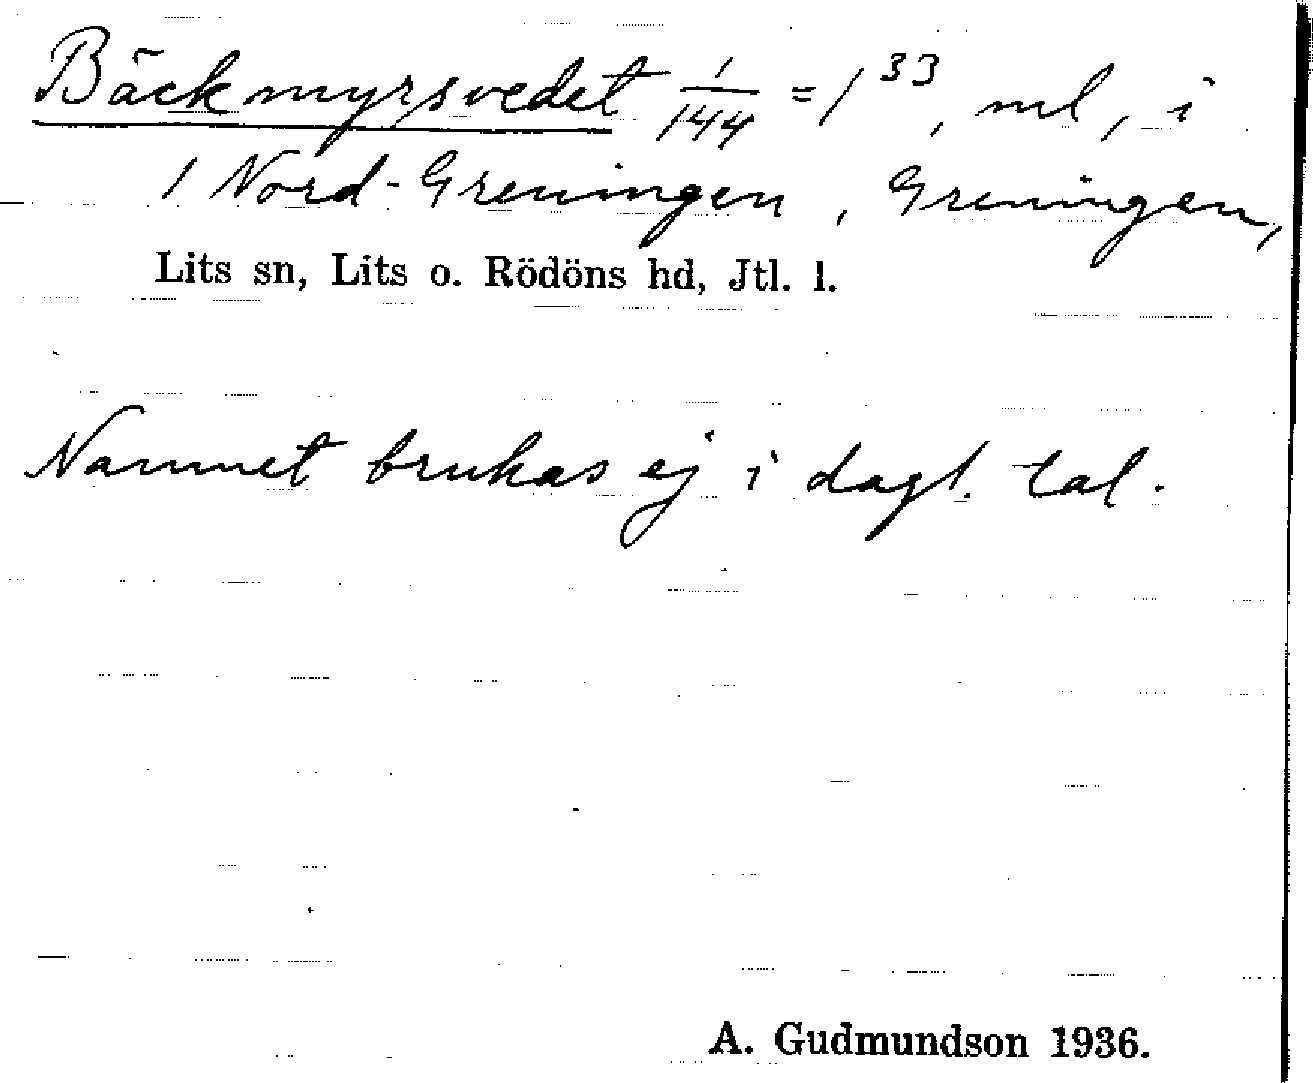 Bäckmyrsvedet 1/144 = 1³³, ml, i
1 Nord-Greningen, Greningen,
Lits sn, Lits o. Rödöns hd, Jtl. l.
Namnet brukas ej i dagl. tal.
A. Gudmundson 1936.